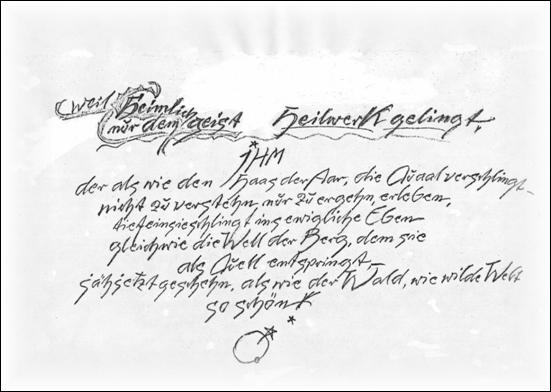 weil Heimlich
nur dem Geist Heilwerk gelingt,
IHM
der als wie den Haas der Aar, die Quaal verschlingt –
nicht zu verstehn, nur zu ergehn, erleben,
tieteinsieschlingt ins ewigliche Eben
gleichwie die Well der Berg, dem sie
als Quell entspringt –
jähjetzt geschehn, als wie der Wald, wie wilde Welt
so schön